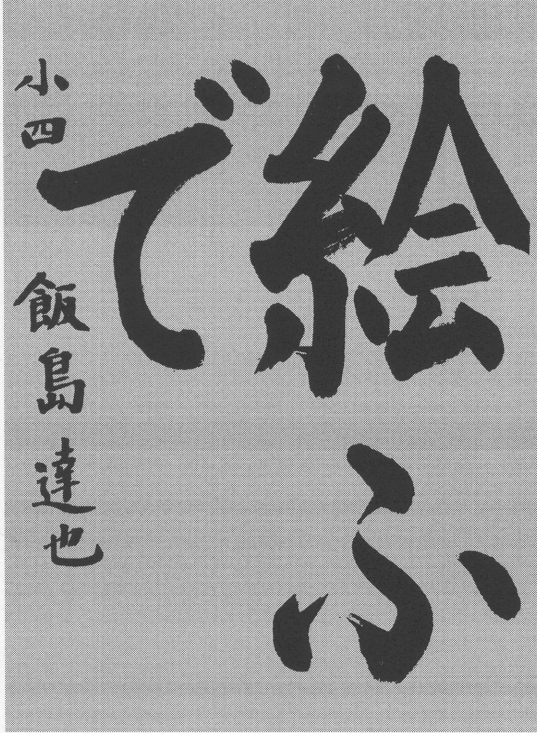 絵ふ
で
小四 飯島達也